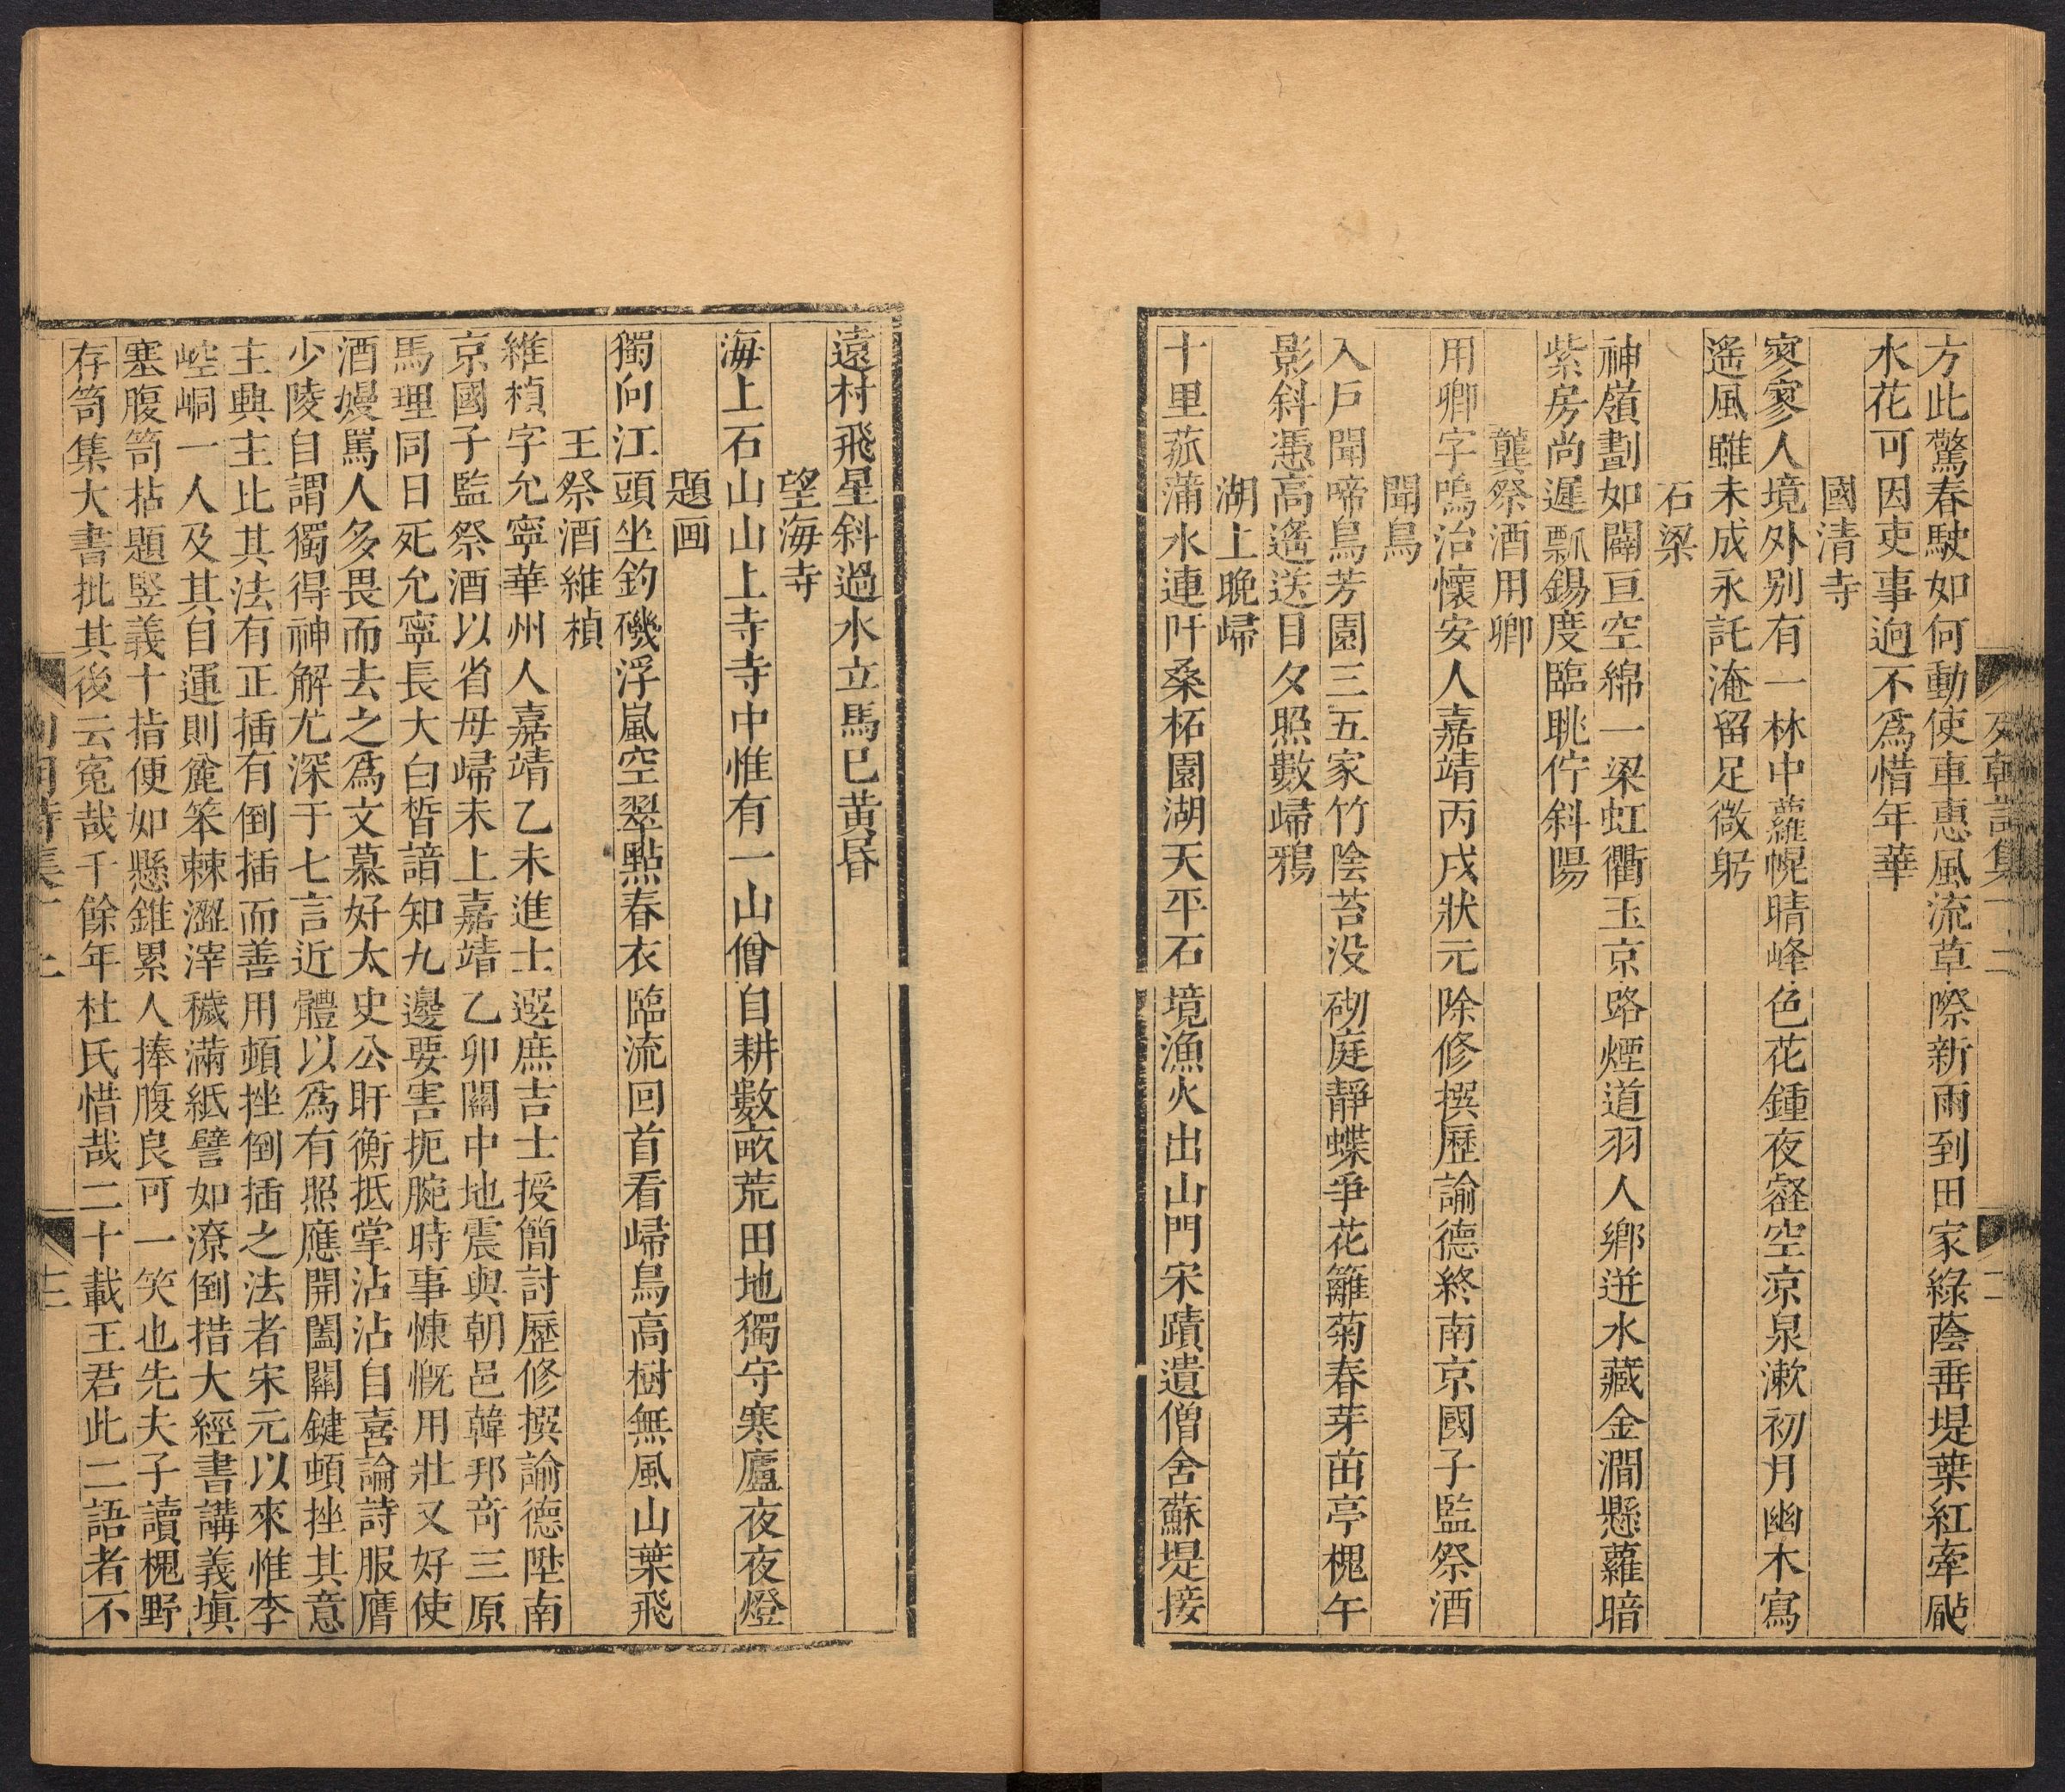 方此驚春駛如何動使車惠風流草際新雨到田家綠蔭垂堤葉紅牽颭
水花可因吏事逈不爲惜年華
國清寺
寥寥人境外别有一林中蘿幌晴峰色花鍾夜壑空凉泉漱初月幽木寫
遥風雖未成永託淹留足微躬
石梁
神嶺劃如闢亘空綿一梁虹衢玉京路煙道羽人鄉迸水藏金澗懸蘿暗
紫房尚遲瓢錫度臨眺佇斜陽
龔祭酒用卿
用卿字鳴治懷安人嘉靖丙戌狀元除修撰歷諭德終南京國子監祭酒
聞鳥
入戸聞啼鳥芳園三五家竹陰苔没砌庭靜蝶爭花籬菊春芽苗亭槐午
影斜憑高遙送目夕照數歸鴉
湖上晚歸
十里菰蒲水連吁桑柘園湖天平石境漁火出山門宋蹟遺僧舍蘇堤接
遠村飛星斜過水立馬已黄昏
望海寺
海上石山山上寺寺中惟有一山僧自耕數畝荒田地獨守寒廬夜夜燈
題画
獨向江頭坐釣磯浮嵐空翠點春衣臨流回首看歸鳥高樹無風山葉飛
王祭酒維楨
維楨字允寧華州人嘉靖乙未進士選庶吉士授簡討歷修撰諭德陞南
京國子監祭酒以省母歸未上嘉靖乙卯關中地震與朝邑韓邦奇三原
馬理同日死允寧長大白皙諳知九邊要害扼腕時事慷慨用壯又好使
酒嫚罵人多畏而去之爲文慕好太史公盱衡抵掌沾沾自喜論詩服膺
少陵自謂獨得神解尤深于七言近體以爲有照應開闔關鍵頓挫其意
主興主比其法有正插有倒插而善用頓挫倒插之法者宋元以來惟李
崆峒一人及其自運則麄笨棘澀滓穢滿紙譬如潦倒措大經書講義塡
塞腹笥拈題竪義十指便如懸錐累人捧腹良可一笑也先夫子讀槐野
存笥集大書批其後云寃哉千餘年杜氏惜哉二十載王君此二語者不